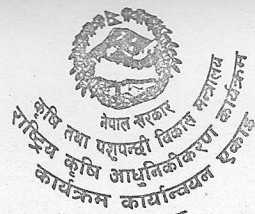 नेपाल सरकार
कृषि तथा पशुपन्छी विकास मन्त्रालय
राष्ट्रिय कृषि आधुनिकीकरण कार्यक्रम
कार्यक्रम कार्यान्वयन एकाइ